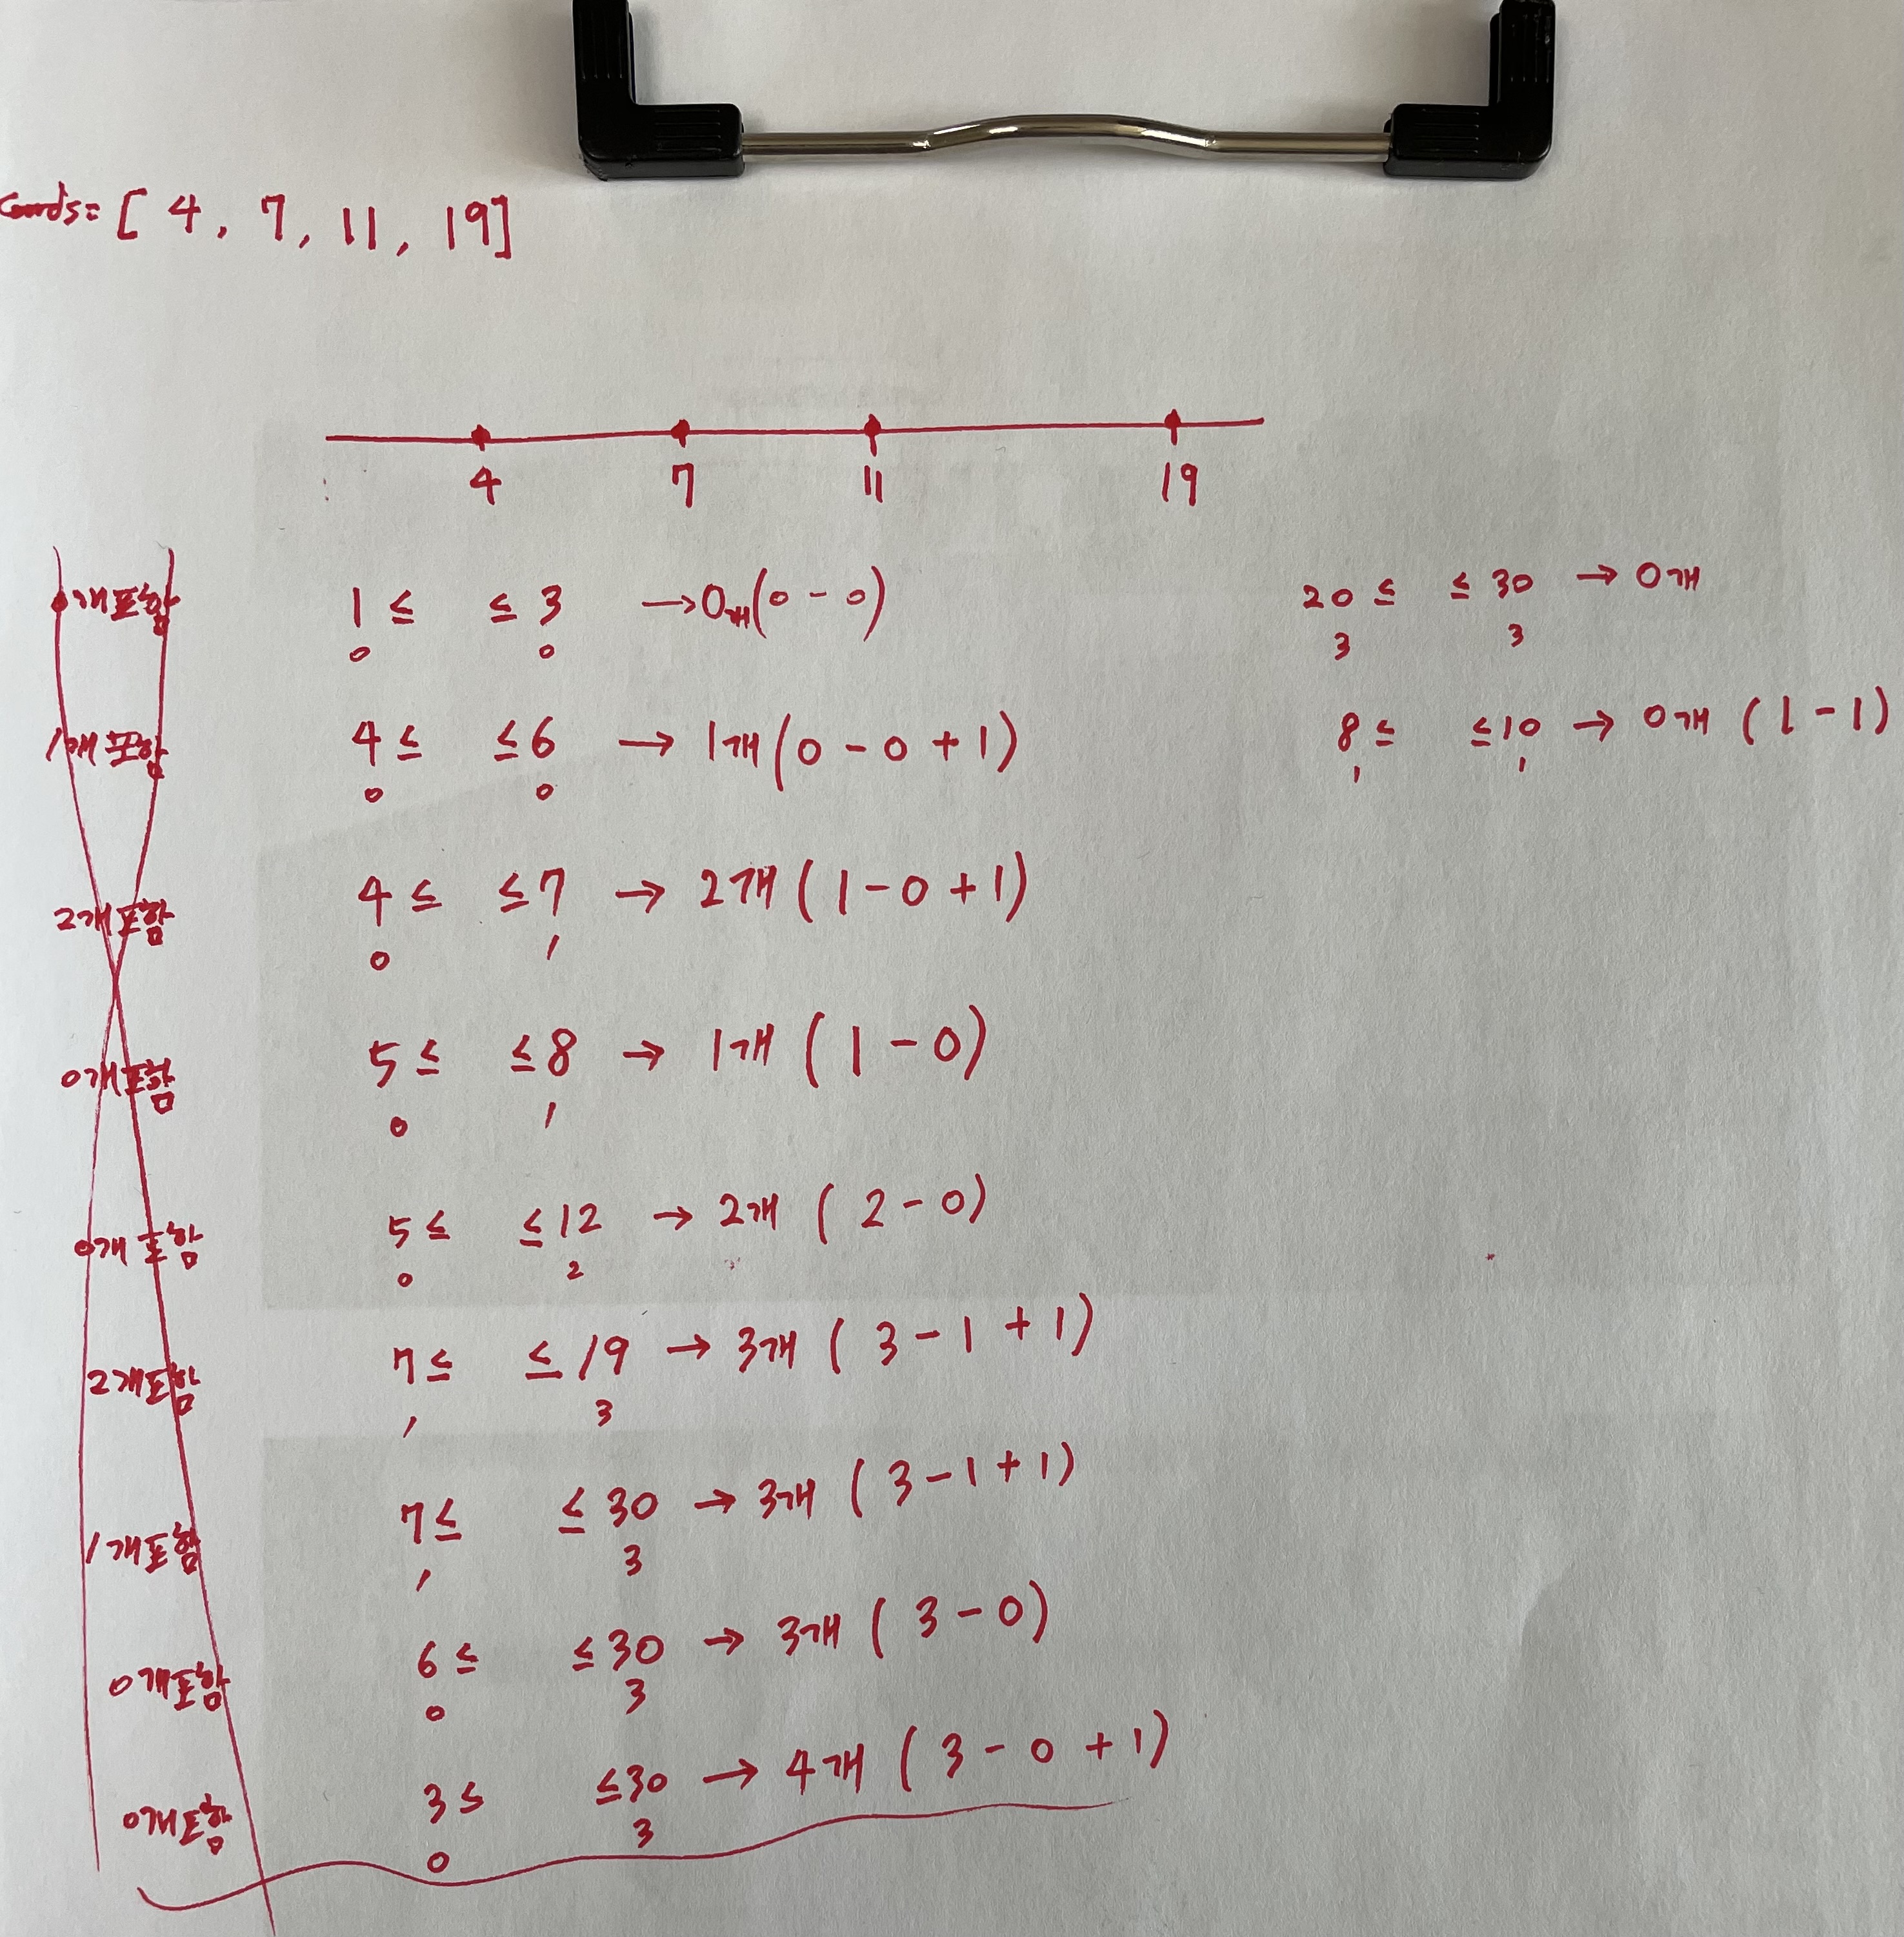 coords= [ 4, 7, 11, 19]
4 7 11 19
0개포함 1 ≤ ≤ 3 → 0개(0 - 0)
0 0
1개포함 4 ≤ ≤ 6 → 1개(0 - 0 + 1)
0 0
2개포함 4 ≤ ≤ 7 → 2개 ( 1 - 0 + 1)
0 1
0개포함 5 ≤ ≤ 8 → 1개 ( 1 - 0)
0 1
0개포함 5 ≤ ≤ 12 → 2개 ( 2 - 0)
0 2
2개포함 7 ≤ ≤ 19 → 3개 ( 3 - 1 + 1)
1 3
1개포함 7 ≤ ≤ 30 → 3개 ( 3 - 1 + 1)
1 3
0개포함 6 ≤ ≤ 30 → 3개 ( 3 - 0)
0 3
0개포함 3 ≤ ≤ 30 → 4개 ( 3 - 0 + 1)
0 3
20 ≤ ≤ 30 → 0개
3 3
8 ≤ ≤ 10 → 0개 ( 1 - 1)
1 1